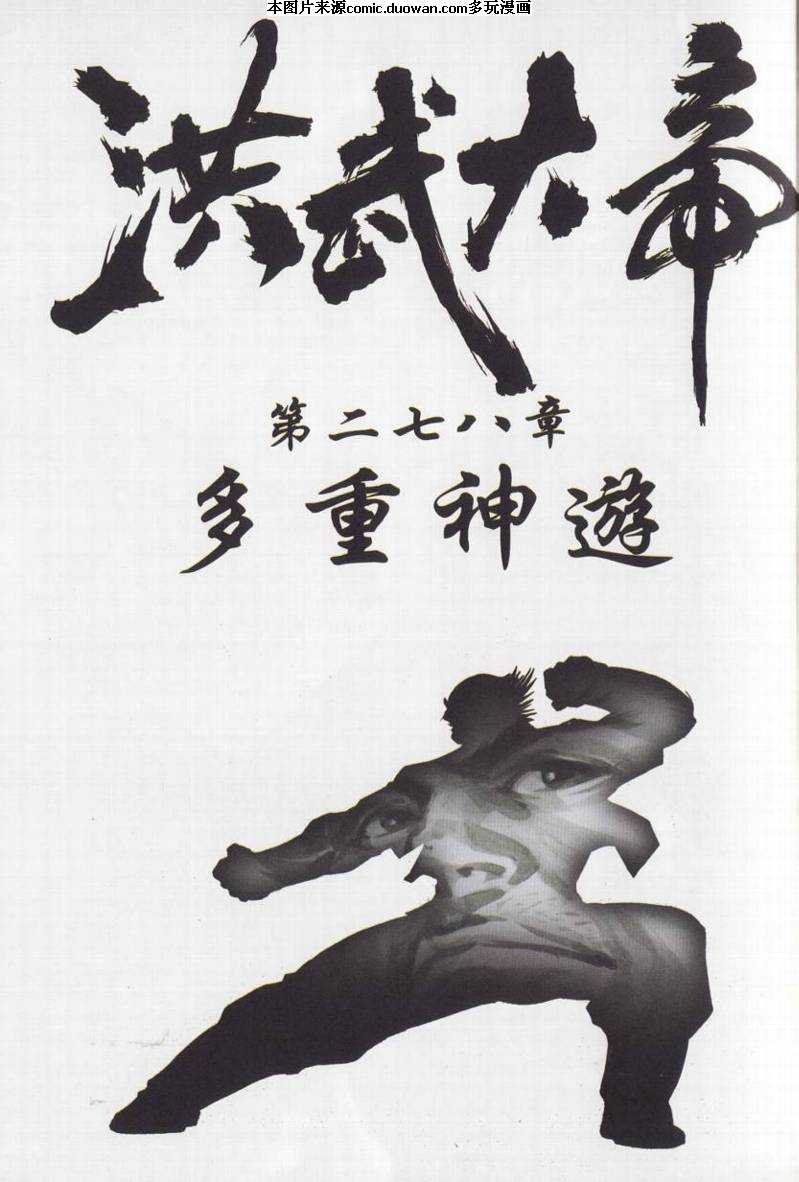 本图片来源comic.duowan.com多玩漫画
洪武大帝
第二七八章
多重神遊